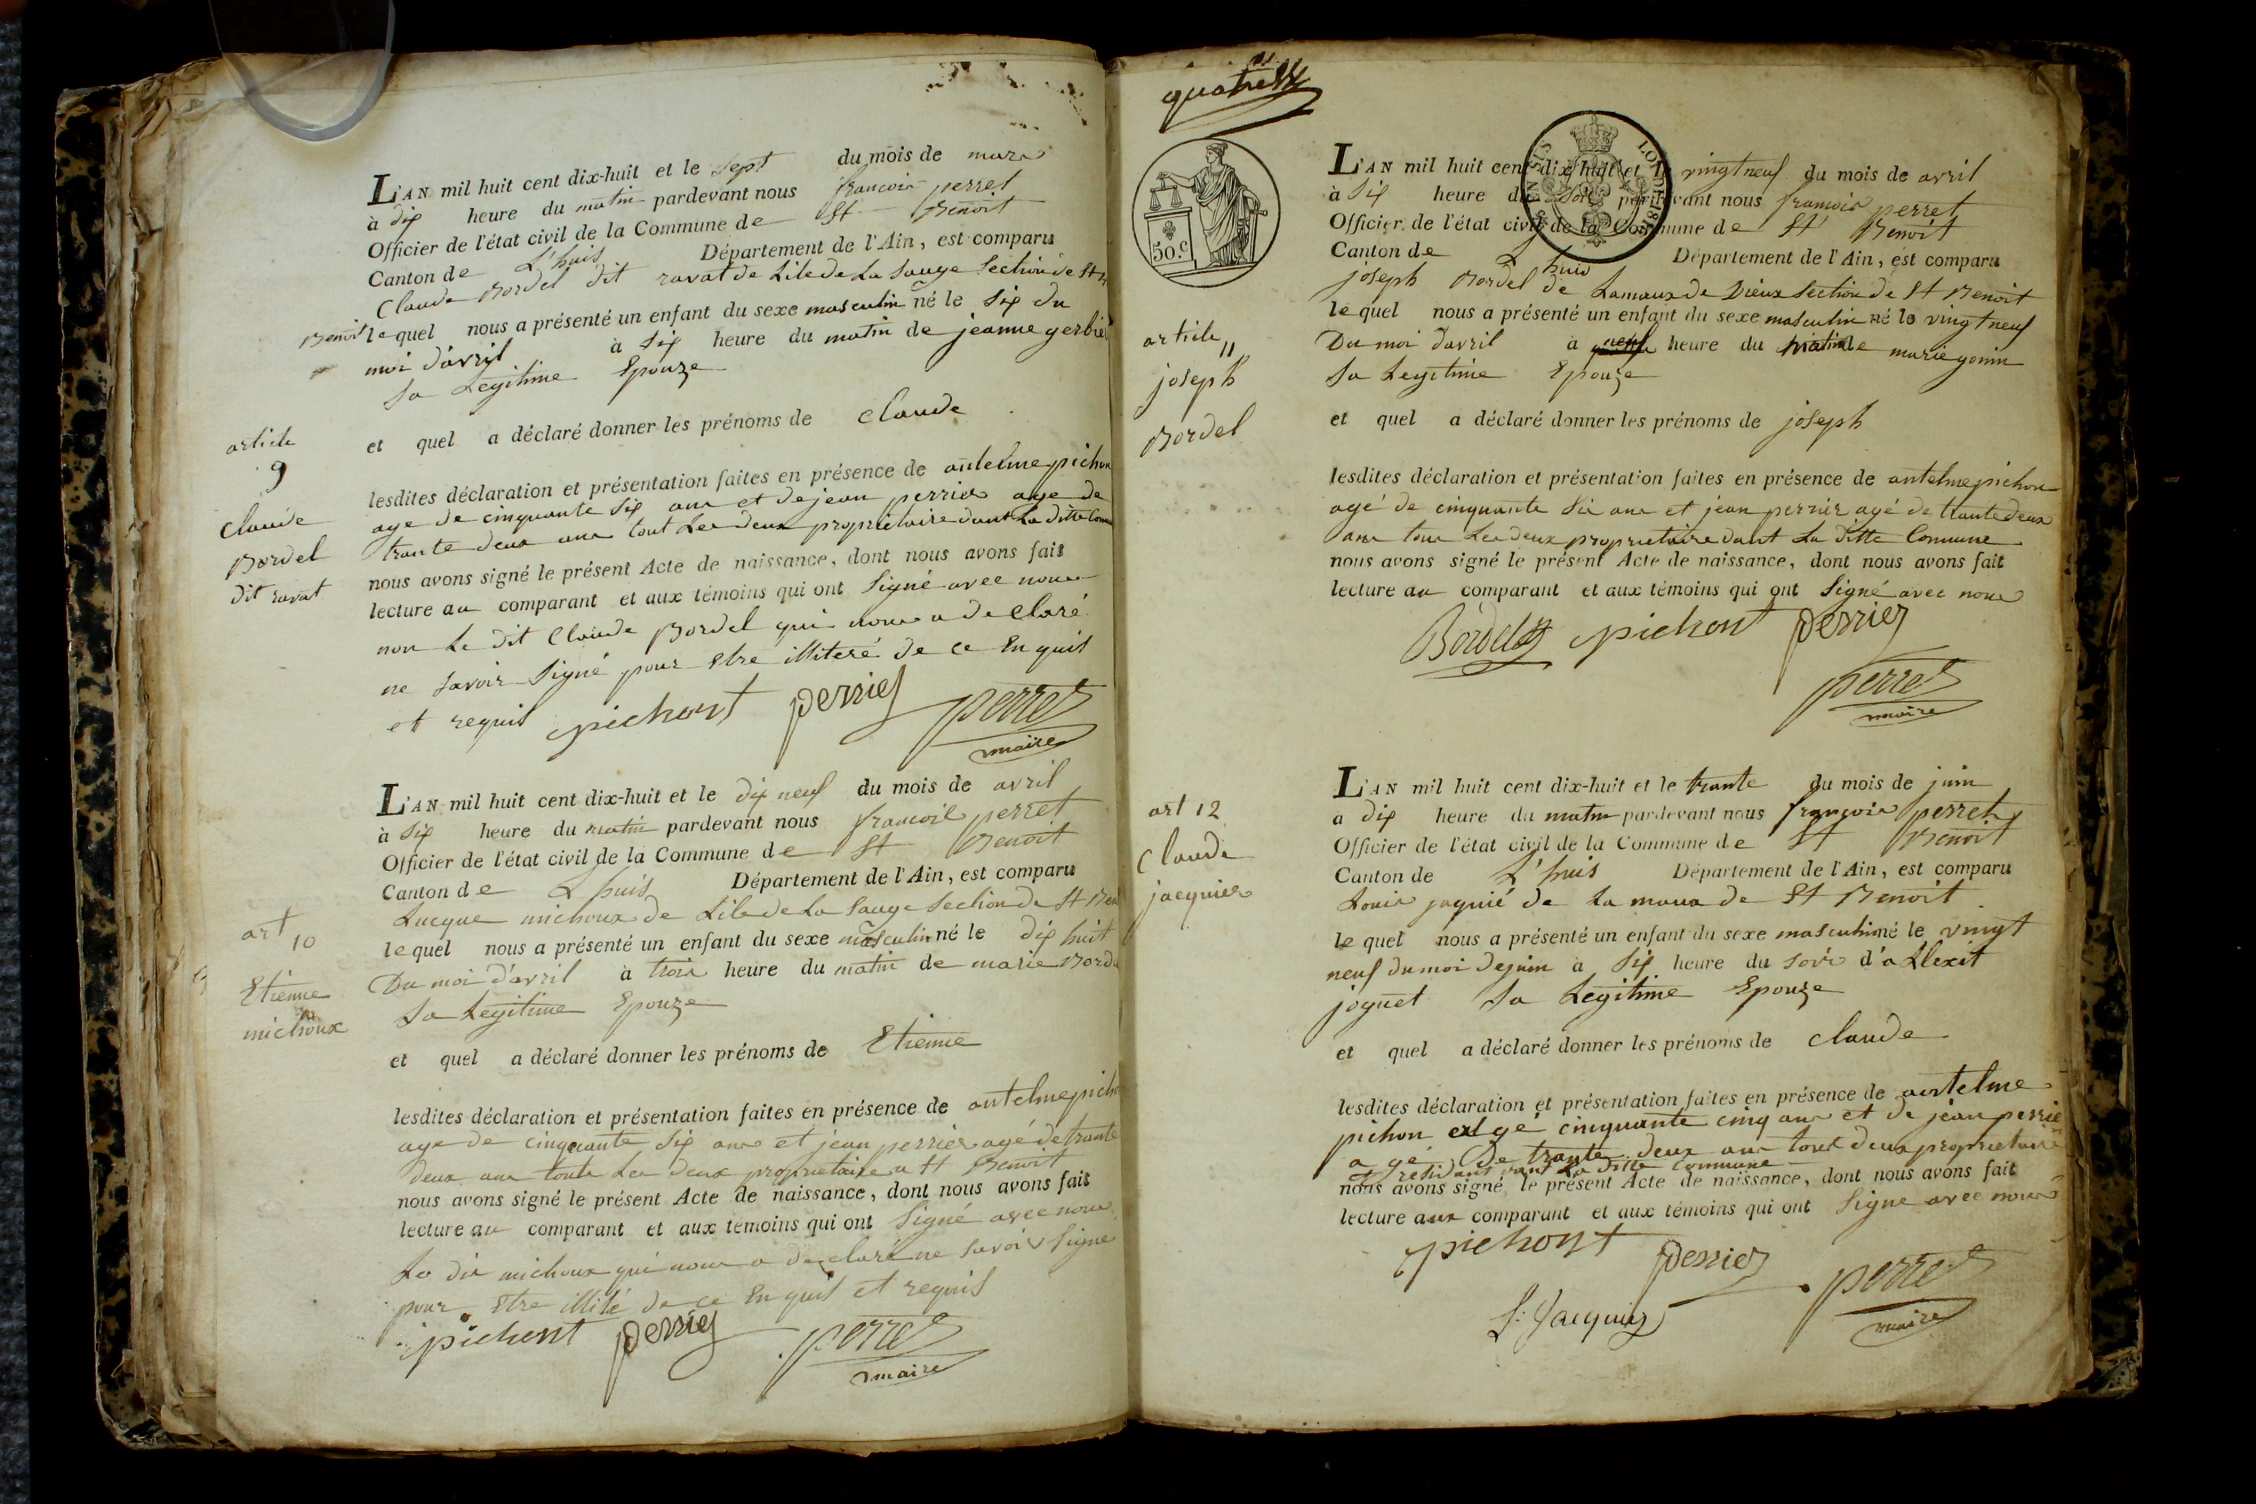 L'AN mil huit cent dix-huit et le sept du mois de mars
à dix heure du matin pardevant nous francois perret
Officier de l'état civil de la Commune de St Benoit
Canton de L'huis Département de l'Ain, est comparu
Claude Bordel dit ravat de Lile de La Sauge Section de St
Benoit lequel nous a présenté un enfant du sexe masculin né le Six du
moi d'avril à Six heure du matin de jeanne gerbie
Sa Legitime Epouze
et quel a déclaré donner les prénoms de Claude
article
9
Claude
Bordel
dit ravat
lesdites déclaration et présentation faites en présence de antelme pichon
age de cinquante Six ans et de jean perrier age de
trante deux ans tout Les deux propriétaire dant La ditte Com
nous avons signé le présent Acte de naissance, dont nous avons fait
lecture au comparant et aux témoins qui ont Signé avec nous
non Le dit Claude Bordel qui nous a declaré
ne savoir Signé pour Etre illiteré de ce Enquis
et requis pichont perrier perret
maire
L'AN mil huit cent dix-huit et le dix neuf du mois de avril
à Six heure du matin pardevant nous francois perret
Officier de l'état civil de la Commune de St Benoit
Canton de L'huis Département de l'Ain, est comparu
Lucque michoux de Lile de La Sauge Section de St Ben
lequel nous a présenté un enfant du sexe masculin né le dix huit
Du moi d'avril à trois heure du matin de marie Bordel
Sa Legitime Epouze
art
10
Etienne
michoux
et quel a déclaré donner les prénoms de Etienne
lesdites déclaration et présentation faites en présence de antelme picho
age de cinquante Six ans et jean perrier agé de trante
deux ans toute Les deux propriétaire a St Benoit
nous avons signé le présent Acte de naissance, dont nous avons fait
lecture au comparant et aux témoins qui ont Signé avec nous
Le dit michoux qui nous a declaré ne savoir Signe
pour Etre illité de ce Enquis et requis
pichont perrier perret
maire
quatre
50.c
L'AN mil huit cent dix-huit et le vingt neuf du mois de avril
à Six heure du Soir pardevant nous francois perret
Officier de l'état civil de la Commune de St Benoit
Canton de L'huis Département de l'Ain, est comparu
joseph Bordel de Lamaux de Dieux Section de St Benoit
lequel nous a présenté un enfant du sexe masculin né le vingt neuf
Du moi d'avril à neuf heure du matin de marie gonin
Sa Legitime Epouze
article 11
joseph
Bordel
et quel a déclaré donner les prénoms de joseph
lesdites déclaration et présentation faites en présence de antelme pichon
agé de cinquante Six ans et jean perrier agé de trante deux
ans tous Les deux propriétaire dant La ditte Comune
nous avons signé le présent Acte de naissance, dont nous avons fait
lecture au comparant et aux témoins qui ont Signé avec nous
Bordel pichont perrier
perret
maire
L'AN mil huit cent dix-huit et le trante du mois de juin
a dix heure du matin pardevant nous françois perret
Officier de l'état civil de la Commune de St Benoit
Canton de L'huis Département de l'Ain, est comparu
Louis jaquié de La maux de St Benoit
lequel nous a présenté un enfant du sexe masculin né le vingt
neuf du moi de juin à Six heure du soir d'a Llexit
joguet Sa Legitime Epouze
art 12
Claude
jacquier
et quel a déclaré donner les prénoms de Claude
lesdites déclaration et présentation faites en présence de antelme
pichon agé cinquante cinq ans et de jean perrie
agé De trante deux ans tout deux proprietaire
et residant dant La ditte Commune
nous avons signé le présent Acte de naissance, dont nous avons fait
lecture aux comparant et aux témoins qui ont Signe avec nous
pichont perrier perret
L: Jacquier maire